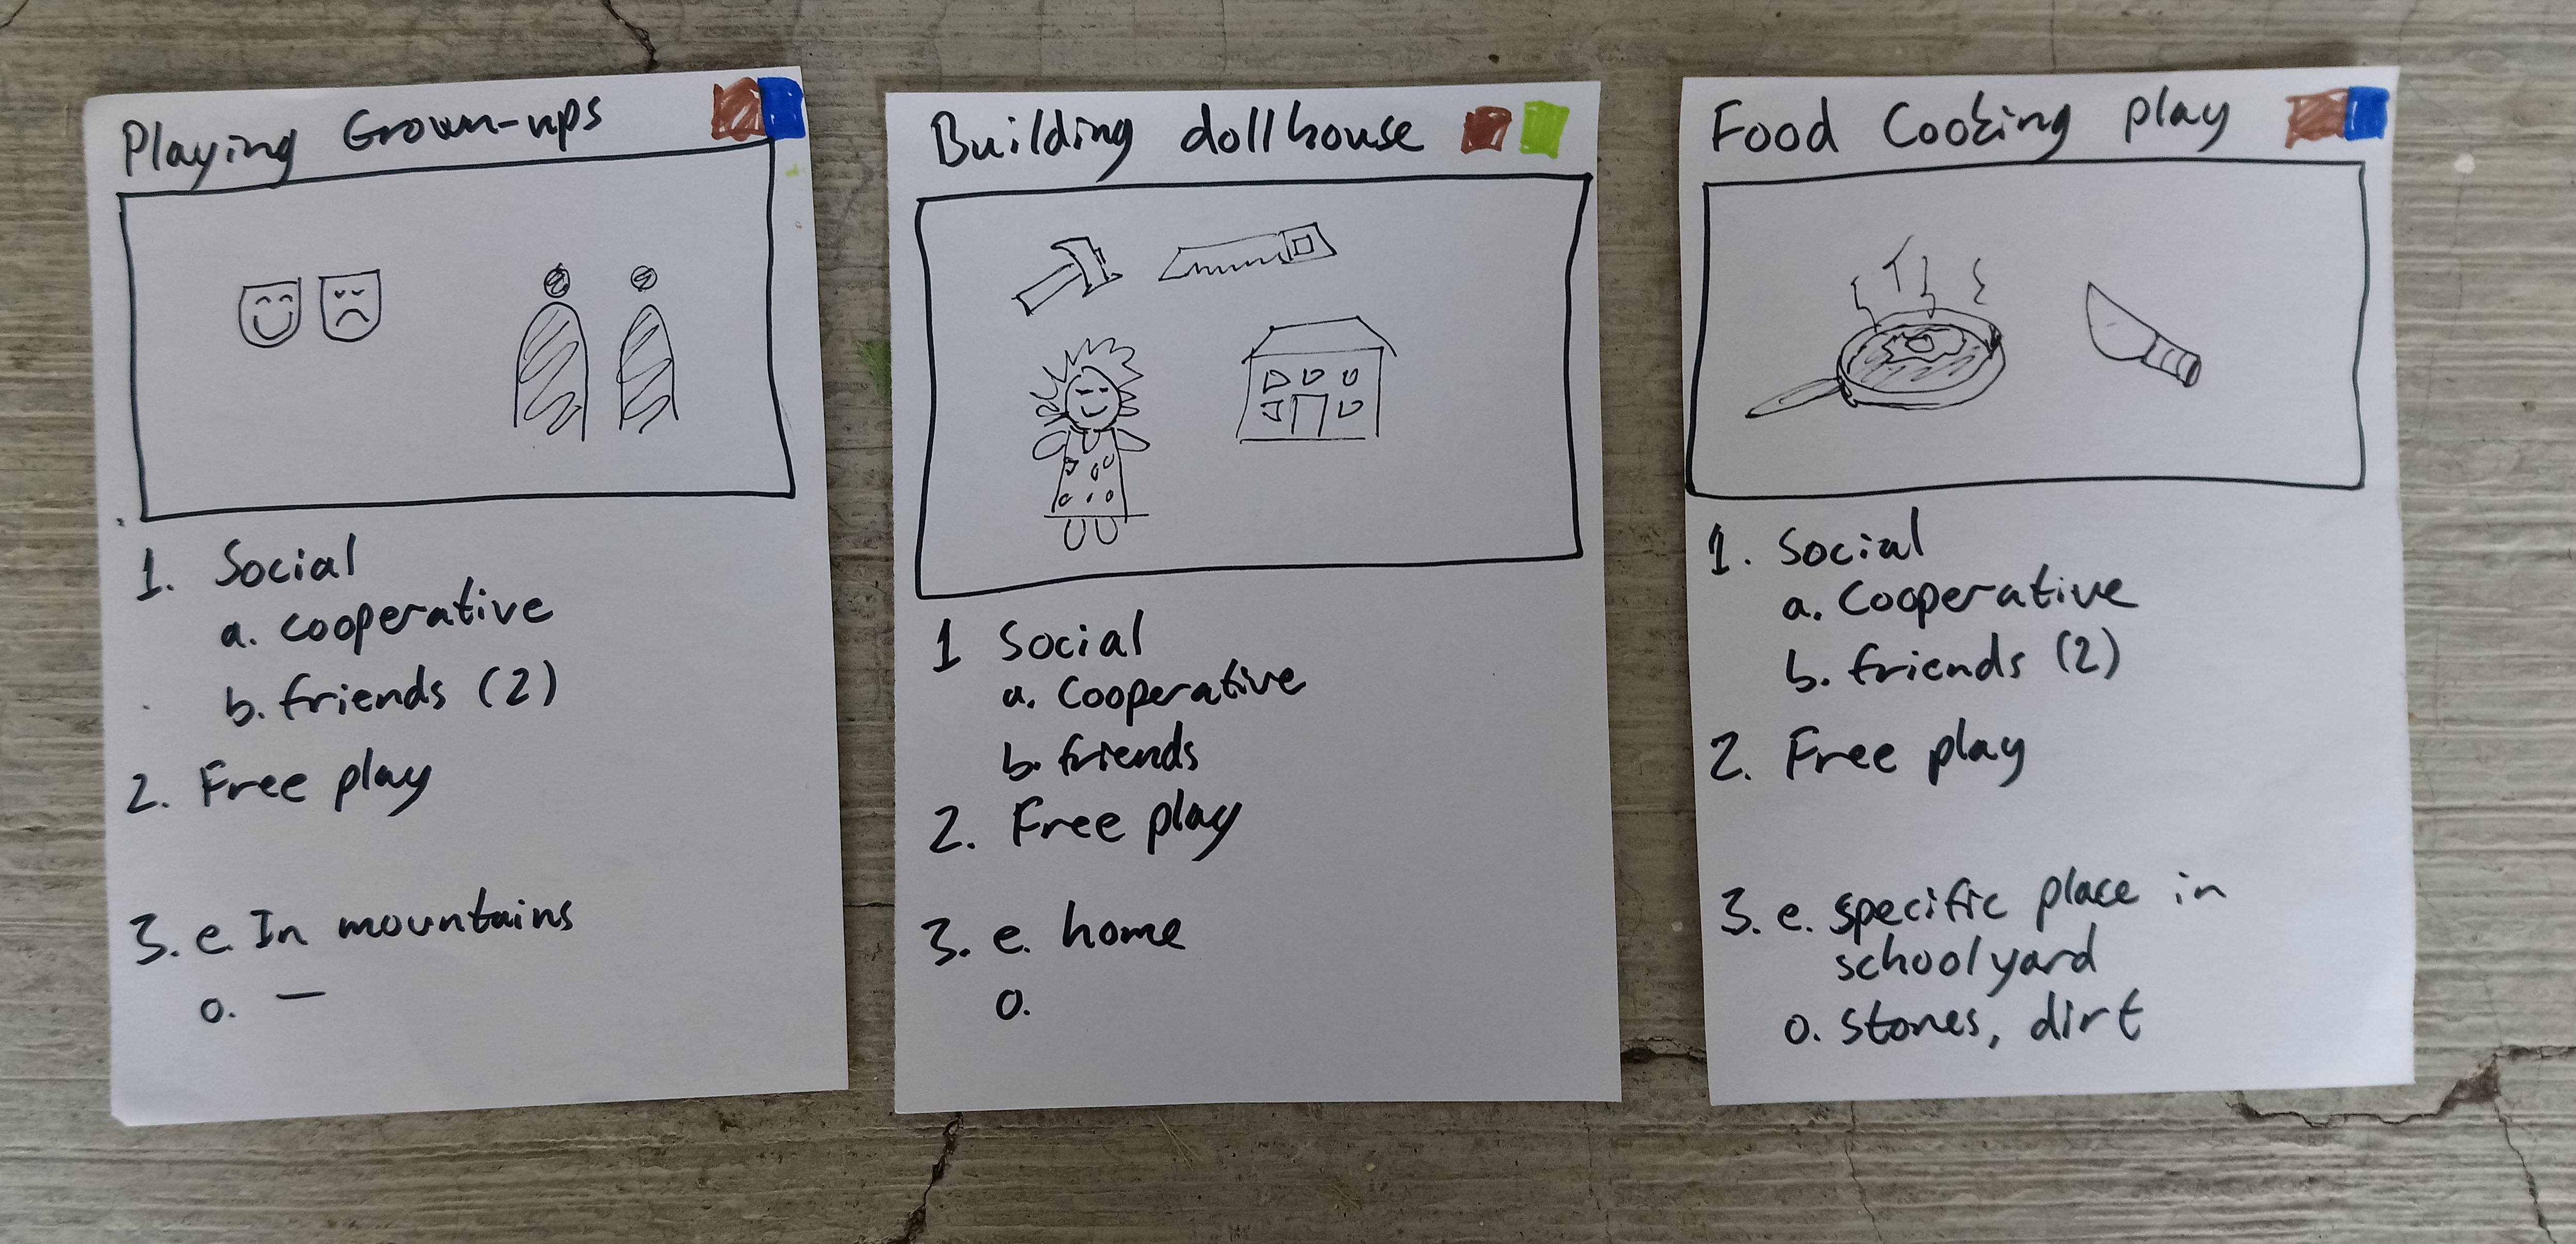 Playing Grown-ups
1. Social
a. cooperative
b. friends (2)
2. Free play
3. e. In mountains
o. —
Building dollhouse
1 Social
a. Cooperative
b. friends
2. Free play
3. e. home
o.
Food Cooking play
1. Social
a. Cooperative
b. friends (2)
2. Free play
3. e. specific place in
schoolyard
o. stones, dirt